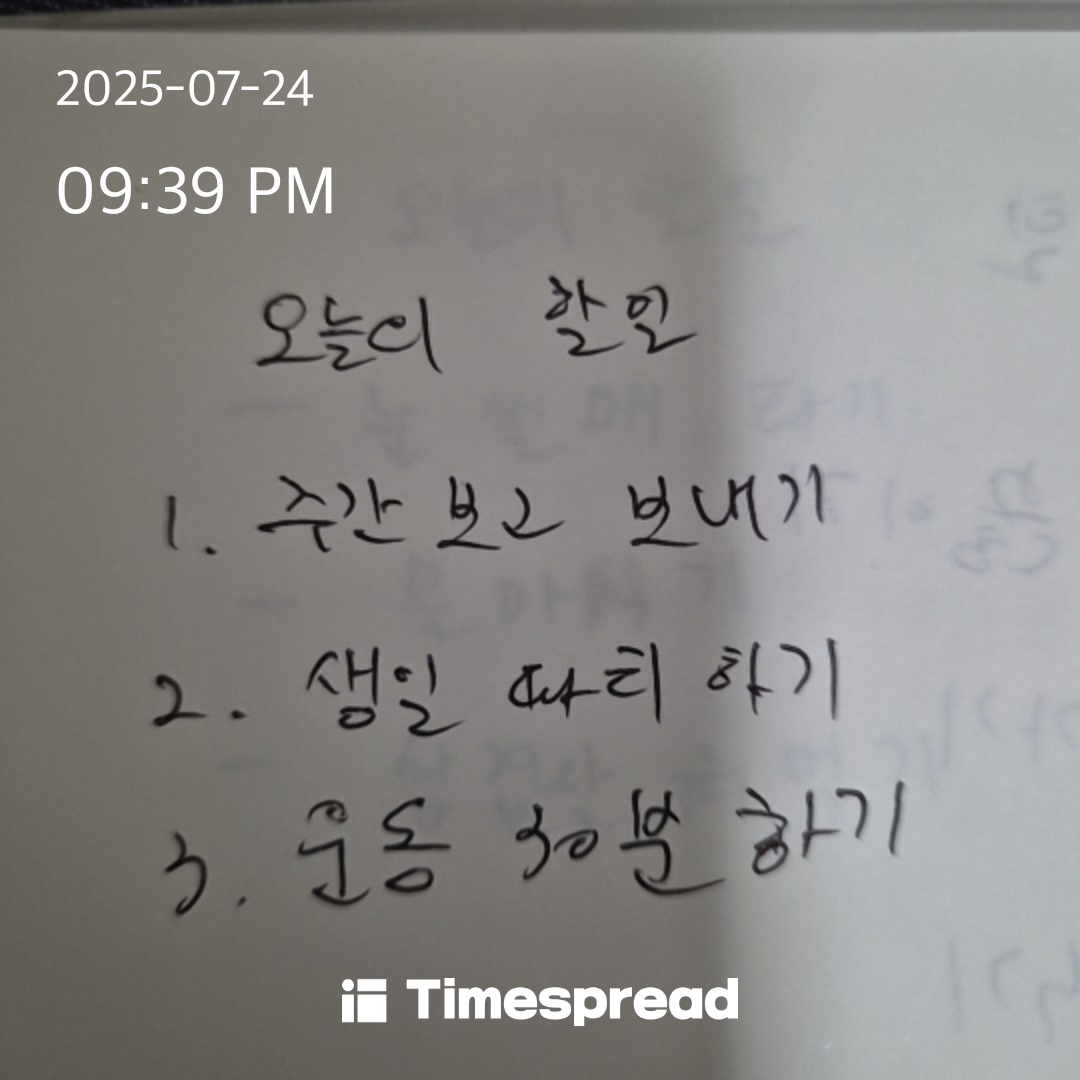 2025-07-24
09:39 PM
오늘의 할일
1. 주간보고 보내기
2. 생일 파티 하기
3. 운동 30분 하기
Timespread